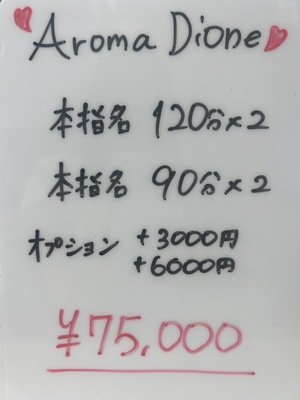 Aroma Dione
本指名 120分×2
本指名 90分×2
オプション +3000円
+6000円
¥75,000